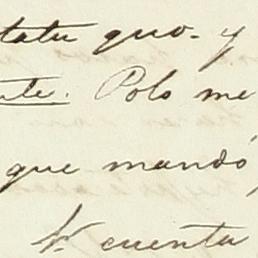 statu quo. y
nte. Polo me
que mandó,
V. cuenta